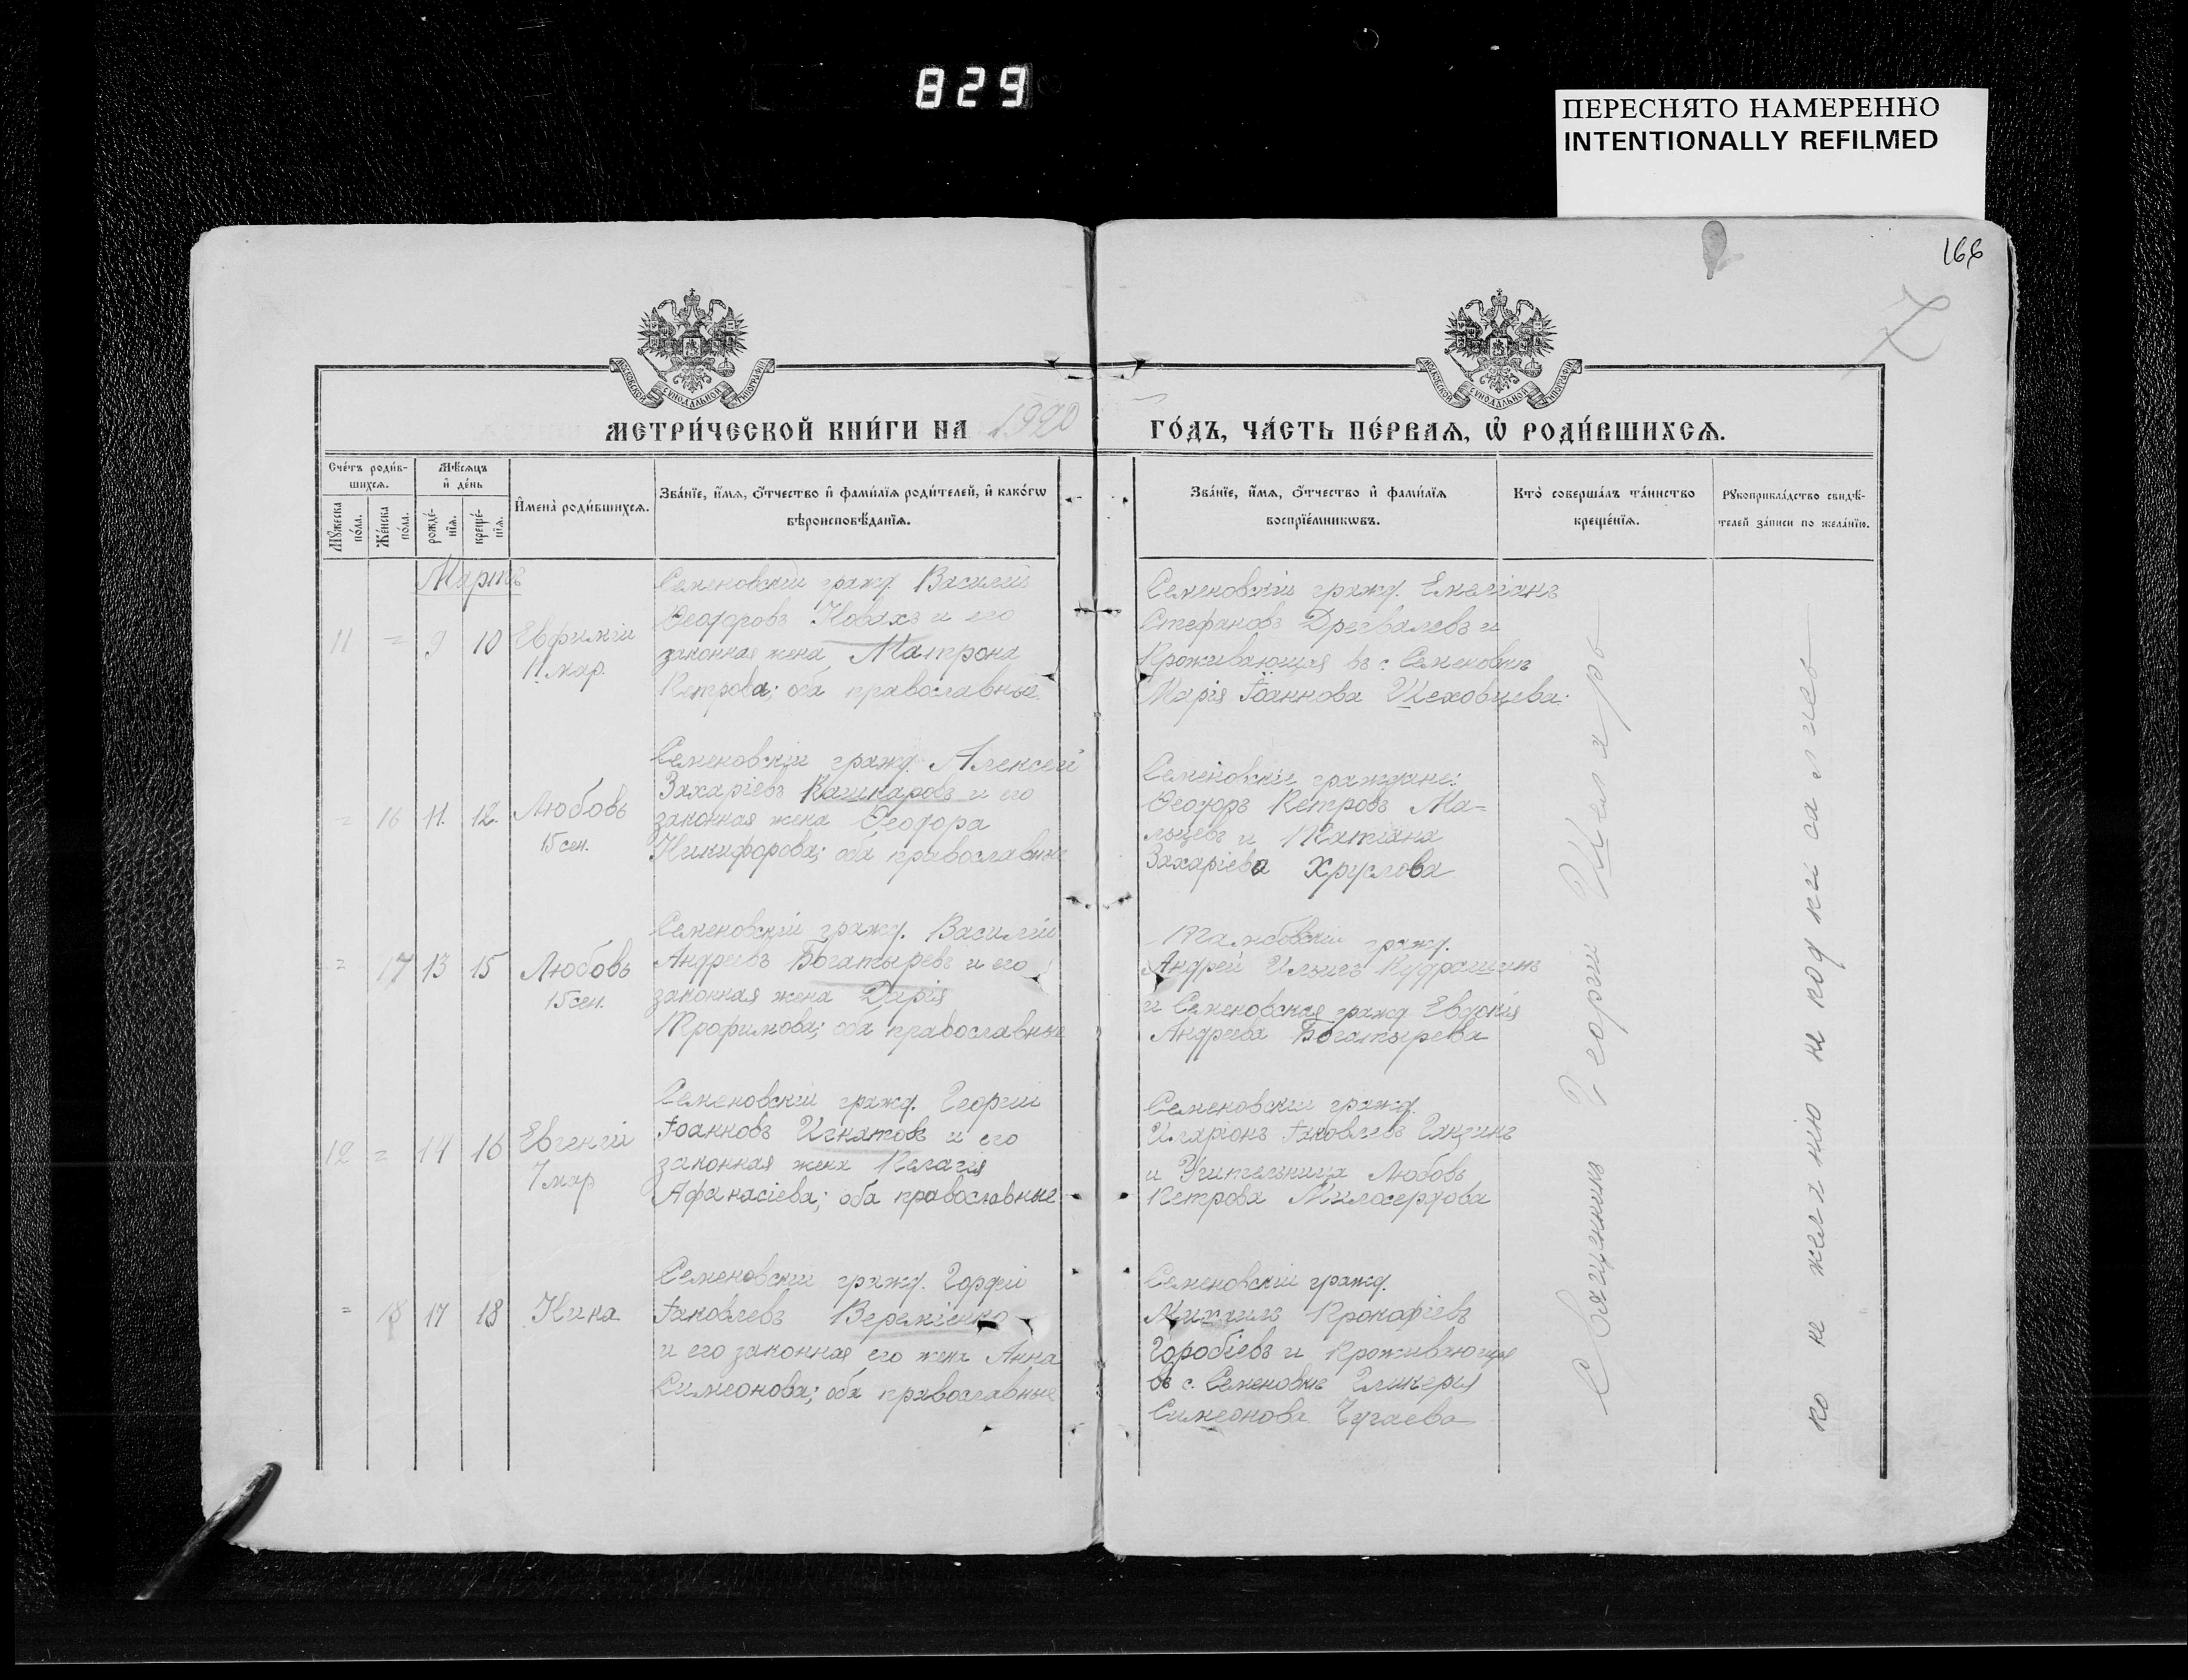 829
ПЕРЕСНЯТО НАМЕРЕННО
INTENTIONALLY REFILMED
166
7
МОСКОВСКОЙ СѴНОДАЛЬНОЙ ТИПОГРАФІИ
МОСКОВСКОЙ СѴНОДАЛЬНОЙ ТИПОГРАФІИ
МЕТРИ́ЧЕСКОЙ КНИ́ГИ НА 1920 ГО́ДЪ, ЧА́СТЬ ПЕ́РВАѦ, Ѽ РОДИ́ВШИХСѦ.
Сче́тъ роди́в-
шихсѧ.
Мꙋжеска по́ла.
Же́нска по́ла.
Мѣ́сѧцъ
и҆ де́нь
рожде́-
нїѧ.
креще́-
нїѧ.
И҆мена̀ роди́вшихсѧ.
Зва́нїе, и҆́мѧ, ѻ҆́тчество и҆ фами́лїѧ роди́телей, и҆ како́гѡ
вѣроисповѣ́данїѧ.
Зва́нїе, и҆́мѧ, ѻ҆́тчество и҆ фами́лїѧ
воспрїе́мникѡвъ.
Кто̀ соверша́лъ та́инство
креще́нїѧ.
Рꙋкоприкла́дство свидѣ́-
телей за́писи по жела́нїю.
Мартъ
11 = 9 10 Евфимій
11 мар.
Семеновскій гражд. Василій
Ѳеодоровъ Новахъ и его
законная жена Матрона
Петрова; оба православные.
Семеновскій гражд. Емеліанъ
Стефановъ Дрегвалевъ и
Проживающая въ с. Семеновкѣ
Марія Іоаннова Шеховцева.
= 16 11. 12. Любовь
15 сен.
Семеновскій гражд. Алексей
Захаріевъ Кашкаровъ и его
законная жена Ѳеодора
Никифорова; оба православные
Семеновскіе граждане:
Ѳеодоръ Петровъ Ма-
льцевъ и Татіана
Захаріева Хруслова
= 17 13 15 Любовь
15 сен.
Семеновскій гражд. Василій
Андреевъ Богатыревъ и его
законная жена Дарія
Трофимова; оба православные
Тамбовскій гражд.
Андрей Ильиев Кудрашинъ
и Семеновская гражд Евдокія
Андреева Богатырева
12 = 14 16 Евгеній
7 мар
Семеновскій гражд. Георгій
Іоанновъ Игнатовъ и его
законная жена Пелагія
Афанасіева; оба православные
Семеновскій гражд.
Иларіонъ Іаковлевъ Ганзинъ
и Учительница Любовь
Петрова Милосердова
= 18 17 18 Нина
Семеновскій гражд. Гордій
Іаковлевъ Веремієнко
и его законная его жена Анна
Симеонова; оба православные
Семеновскій гражд.
Михаилъ Прокофіевъ
Горобіевъ и Проживающая
въ с. Семеновкѣ Гликерія
Симеонова Чугаева
Священникъ Георгій
по не желанію не подписались